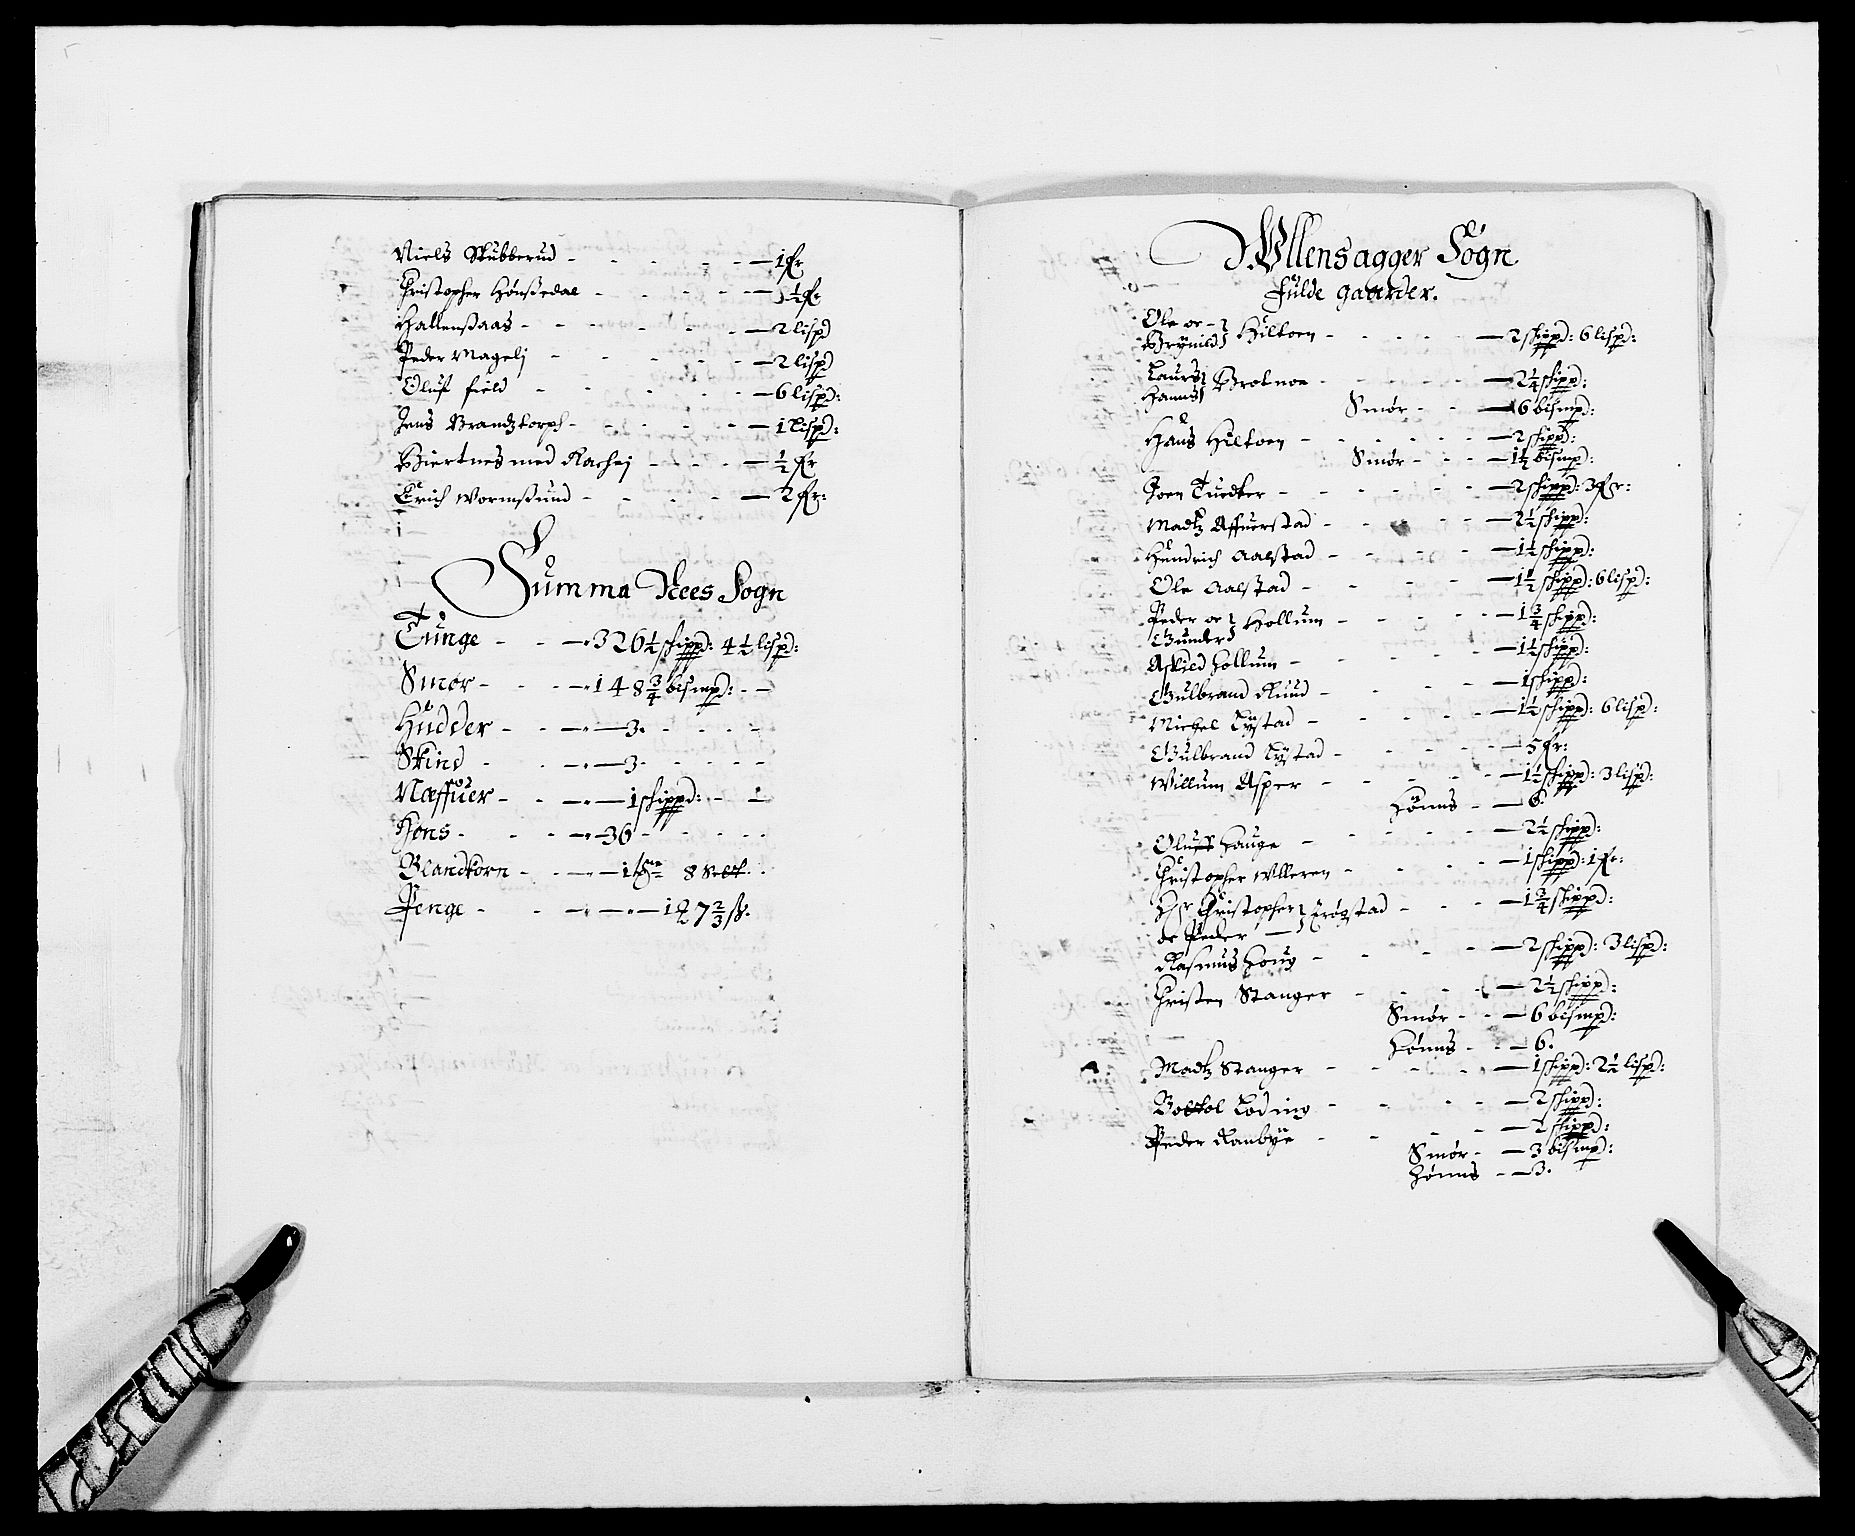 Niels Skubberud - - - - - 1 fr
Christopher Hønßedal - - - - - ½ fr
Hallenßaas - - - - - 2 lispd
Peder Magelj - - - - - 2 lispd
Oluf field - - - - - 6 lispd:
Jens Brandztorph - - - - - 1 lispd:
Biertnes med Rachej - - - - ½ fr
Erich Wormßund - - - - - 2 fr:
Summa Nees Sogn
Tunge - - - 326½ schippd: 4½ lispd:
Smør - - - 148¾ bismpd:
Hudder - - - 3.
Skind - - - 3.
Næffuer - - - 1 schippd:
Høns - - - 36
Blandkorn - - - 1 tne 8 sett.
Penge - - - 127⅔ ß.
Wllensagger Sogn
fulde gaarder.
Ole oc
Brynild Hiltoen - - - - - 2 schippd: 6 lispd:
Laurs
Hanns Brotnoe - - - - - 2¼ schippd:
Smør - - 6 bismpd:
Hans Hiltoen - - - - - 2 schippd:
Smør - - 1½ bismpd:
Joen Tuedter - - - - - 2 schippd: 3 fr:
Madtz Affuerstad - - - - - 2½ schippd:
Hendrich Aalstad - - - - - 1½ schippd:
Ole Aalstad - - - - - 1½ schippd: 6 lispd:
Peder oc
Gunder Hollum - - - - - 1¾ schippd:
Askild Hollum - - - - - 1½ schippd:
Gulbrand Ruud - - - - - 1 schippd:
Michel Lystad - - - - - 1½ schippd: 6 lispd:
Gulbrand Lystad - - - - - 5 fr:
Willum Asper - - - - - 1½ schippd: 3 lispd:
Hønns - - 6.
Oluff Hauge - - - - - 2½ schippd:
Christopher Wlleren - - - - - 1 schippd: 1 fr:
Hr Christopher
oc Peder Frøgstad - - - 1¾ schippd:
Rasmus Houg - - - - - 2 schippd: 3 lispd:
Christen Stanger - - - - 2½ schippd:
Smør - - 6 bismpd:
Hønns - - 6.
Madtz Stanger - - - - - 1 schippd: 2½ lispd:
Bottol Loding - - - - - 2 schippd:
Peder Ranbye - - - - - 2 schippd:
Smør - - 3 bismpd:
Hønns - - 3.